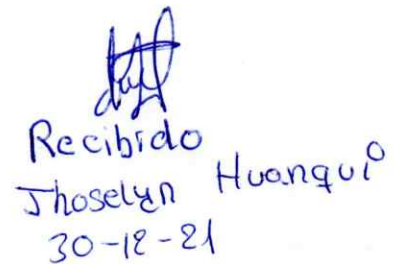 Recibido
Jhoselyn Huanqui
30-12-21